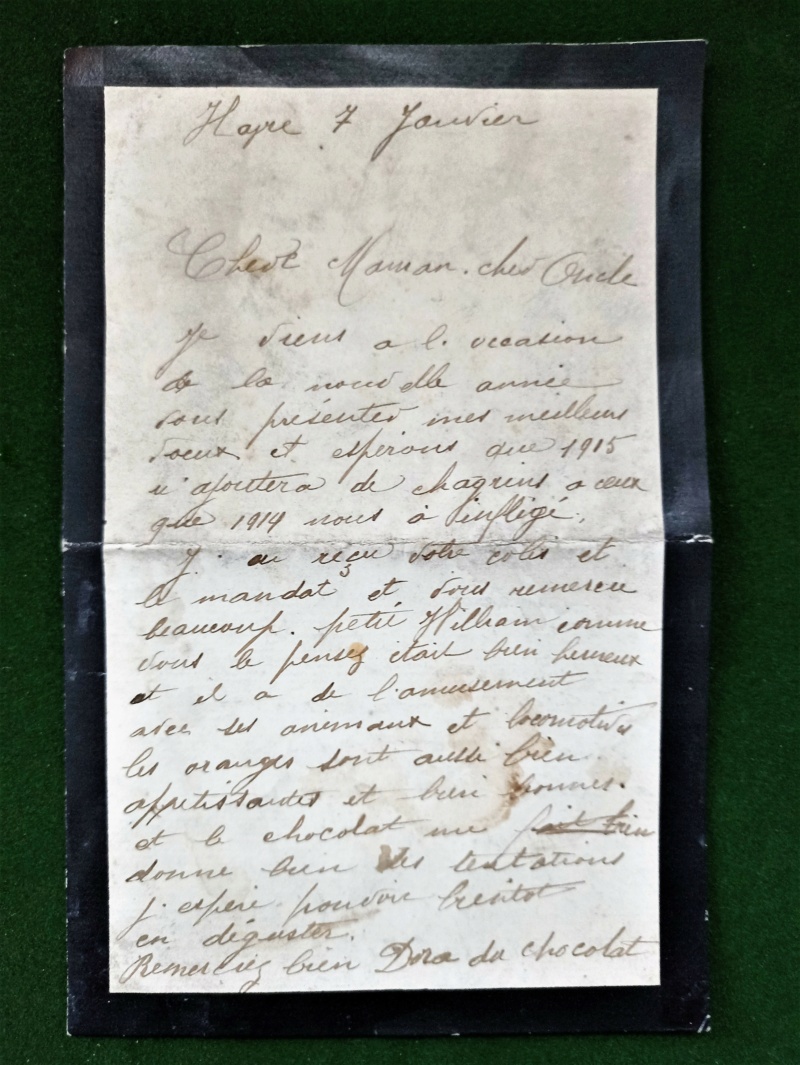 Havre 7 Janvier
Cher Maman. cher Oncle
Je viens a l. occasion
de la nouvelle année
vous présenter mes meilleurs
voeux et espérons que 1915
n'ajoutera de chagrins a ceux
que 1914 nous à infligé.
J. ai reçu votre colis et
le mandat et vous remercie
beaucoup. petit William comme
vous le pensez était bien heureux
et il a de l'amusement
avec ses animaux et locomotives
les oranges sont aussi bien
appetissantes et bien bonnes.
et le chocolat me fait bien
donne bien des tentations
j. espère pouvoir bientot
en déguster.
Remerciez bien Dora du chocolat